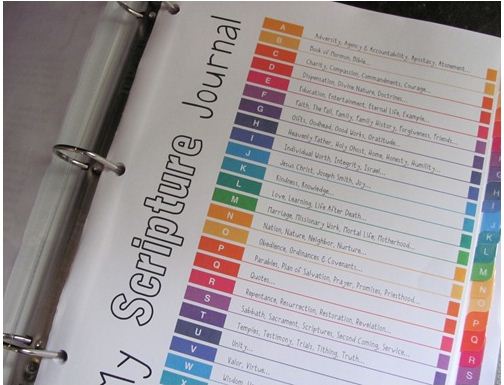 My Scripture Journal
A Adversity, Agency & Accountability, Apostasy, Atonement...
B Book of Mormon, Bible...
C Charity, Compassion, Commandments, Courage...
D Dispensation, Divine Nature, Doctrines...
E Education, Entertainment, Eternal Life, Example...
F Faith, The Fall, Family, Family History, Forgiveness, Friends...
G Gifts, Godhead, Good Works, Gratitude...
H Heavenly Father, Holy Ghost, Home, Honesty, Humility...
I Individual Worth, Integrity, Israel...
J Jesus Christ, Joseph Smith, Joy...
K Kindness, Knowledge...
L Love, Learning, Life After Death...
M Marriage, Missionary Work, Mortal Life, Motherhood...
N Nation, Nature, Neighbor, Nurture...
O Obedience, Ordinances & Covenants...
P Parables, Plan of Salvation, Prayer, Promises, Priesthood...
Q Quotes...
R Repentance, Resurrection, Restoration, Revelation...
S Sabbath, Sacrament, Scriptures, Second Coming, Service...
T Temples, Testimony, Trials, Tithing, Truth...
U Unity...
V Valor, Virtue...
W Wisdom,
X
H
I
J
K
L
M
N
O
P
Q
R
S